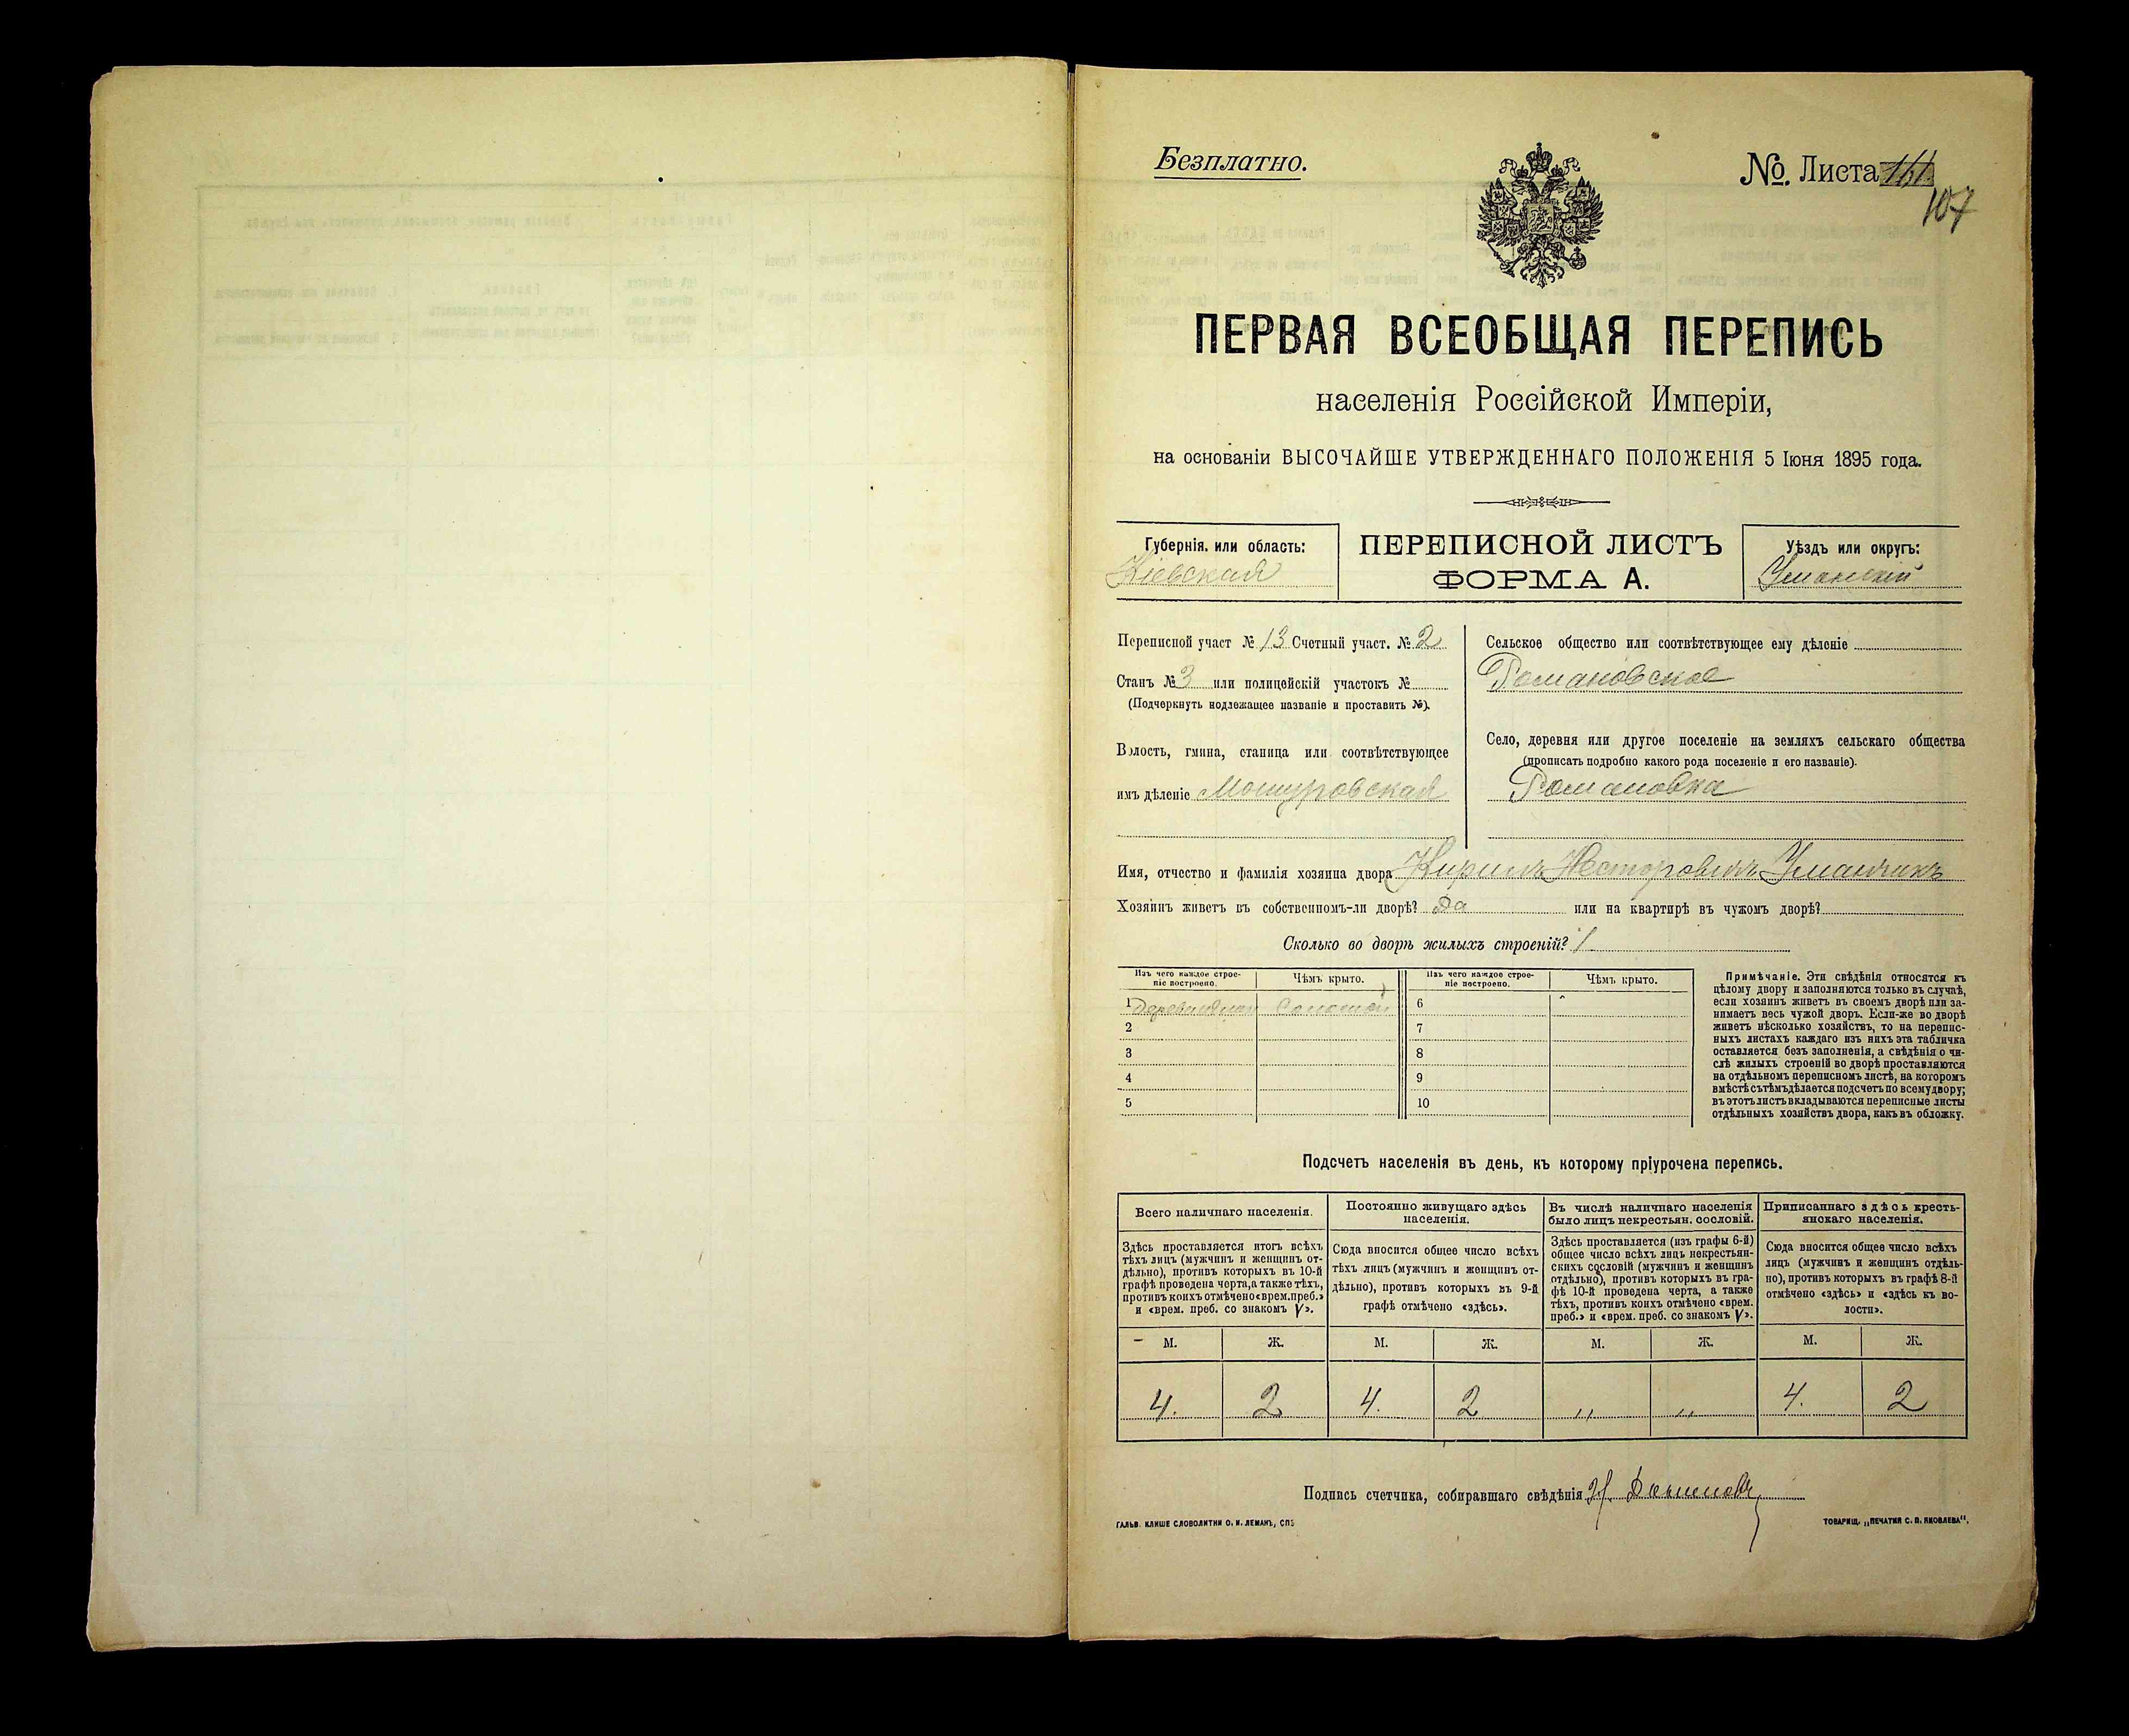 Безплатно.
№. Листа 161
107
ПЕРВАЯ ВСЕОБЩАЯ ПЕРЕПИСЬ
населенія Россійской Имперіи,
на основаніи ВЫСОЧАЙШЕ УТВЕРЖДЕННАГО ПОЛОЖЕНІЯ 5 Іюня 1895 года.
Губернія, или область:
Кіевская
ПЕРЕПИСНОЙ ЛИСТЪ
ФОРМА А.
Уѣздъ или округъ:
Уманскій
Переписной участ № 13 Счетный участ. № 2
Станъ № 3 или полицейскій участокъ №
(Подчеркнуть подлежащее названіе и проставить №).
Волость, гмина, станица или соотвѣтствующее
имъ дѣленіе Мошуровская
Сельское общество или соотвѣтствующее ему дѣленіе
Романовское
Село, деревня или другое поселеніе на земляхъ сельскаго общества
(прописать подробно какого рода поселеніе и его названіе).
Романовка
Имя, отчество и фамилія хозяина двора Кирилъ Несторовичъ Уманчикъ
Хозяинъ живетъ въ собственномъ-ли дворѣ? Да или на квартирѣ въ чужомъ дворѣ?
Сколько во дворѣ жилыхъ строеній? 1
Изъ чего каждое строе-
ніе построено.
Чѣмъ крыто.
Изъ чего каждое строе-
ніе построено.
Чѣмъ крыто.
1 Соломой 6
2 7
3 8
4 9
5 10
Примѣчаніе. Эти свѣдѣнія относятся къ
цѣлому двору и заполняются только въ случаѣ,
если хозяинъ живетъ въ своемъ дворѣ или за-
нимаетъ весь чужой дворъ. Если-же во дворѣ
живетъ нѣсколько хозяйствъ, то на перепис-
ныхъ листахъ каждаго изъ нихъ эта табличка
оставляется безъ заполненія, а свѣдѣнія о чи-
слѣ жилыхъ строеній во дворѣ проставляются
на отдѣльномъ переписномъ листѣ, на которомъ
вмѣстѣ съ тѣмъ дѣлается подсчетъ по всему двору;
въ этотъ листъ вкладываются переписные листы
отдѣльныхъ хозяйствъ двора, какъ въ обложку.
Подсчетъ населенія въ день, къ которому пріурочена перепись.
Всего наличнаго населенія.
Здѣсь проставляется итогъ всѣхъ
тѣхъ лицъ (мужчинъ и женщинъ от-
дѣльно), противъ которыхъ въ 10-й
графѣ проведена черта, а также тѣхъ,
противъ коихъ отмѣчено «врем. преб.»
и «врем. преб. со знакомъ V».
Постоянно живущаго здѣсь
населенія.
Сюда вносится общее число всѣхъ
тѣхъ лицъ (мужчинъ и женщинъ от-
дѣльно), противъ которыхъ въ 9-й
графѣ отмѣчено «здѣсь».
Въ числѣ наличнаго населенія
было лицъ некрестьян. сословій.
Здѣсь проставляется (изъ графы 6-й)
общее число всѣхъ лицъ некрестьян-
скихъ сословій (мужчинъ и женщинъ
отдѣльно), противъ которыхъ въ гра-
фѣ 10-й проведена черта, а также
тѣхъ, противъ коихъ отмѣчено «врем.
преб.» и «врем. преб. со знакомъ V».
Приписаннаго здѣсь кресть-
янскаго населенія.
Сюда вносится общее число всѣхъ
лицъ (мужчинъ и женщинъ отдѣль-
но), противъ которыхъ въ графѣ 8-й
отмѣчено «здѣсь» и «здѣсь къ во-
лости».
М. Ж. М. Ж. М. Ж. М. Ж.
4. 2 4. 2 " " 4. 2
Подпись счетчика, собиравшаго свѣдѣнія
ГАЛЬВ. КЛИШЕ СЛОВОЛИТНИ О. И. ЛЕМАНЪ, СПБ
ТОВАРИЩ. „ПЕЧАТНЯ С. П. ЯКОВЛЕВА".